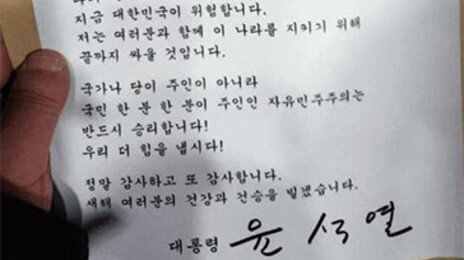 지금 대한민국이 위험합니다.
저는 여러분과 함께 이 나라를 지키기 위해
끝까지 싸울 것입니다.
국가나 당이 주인이 아니라
국민 한 분 한 분이 주인인 자유민주주의는
반드시 승리합니다!
우리 더 힘을 냅시다!
정말 감사하고 또 감사합니다.
새해 여러분의 건강과 건승을 빌겠습니다.
대통령 윤석열